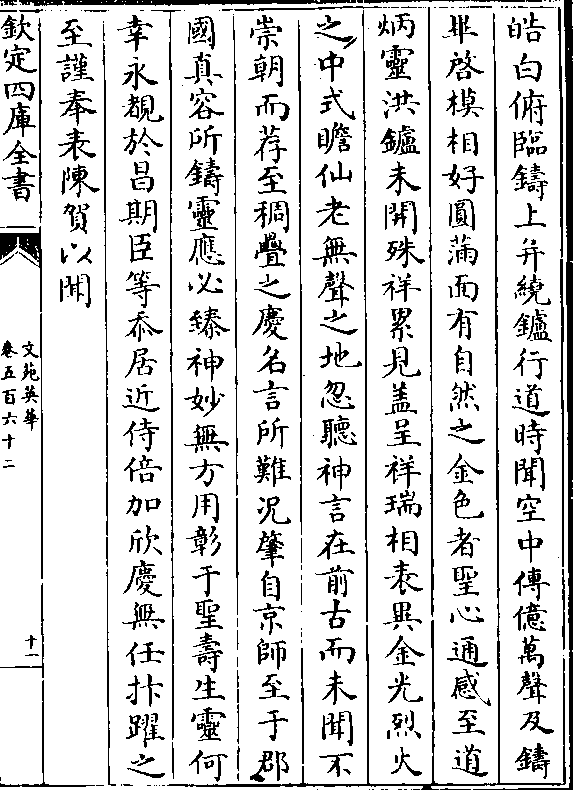 皓白俯臨鑄上并繞鑪行道時聞空中傳億萬聲及鑄
畢啓模相好圓滿面有自然之金色者聖心通感至道
炳靈洪鑪未開殊祥累見盖呈祥瑞相表異金光烈火
之中式瞻仙老無聲之地忽聽神言在前古而未聞不
崇朝而荐至稠疊之慶名言所難况肇自京師至于郡
國真容所鑄靈應必臻神妙無方用彰于聖壽生靈何
幸永覩於昌期臣等忝居近侍倍加欣慶無任抃躍之
至謹奉表陳賀以聞
欽定四庫全書
文苑英華
卷五百六十二
十一